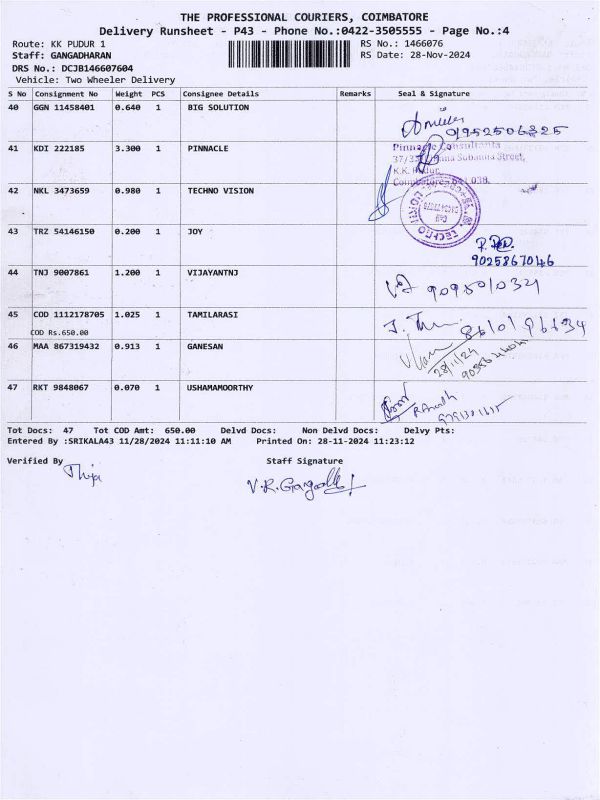 THE PROFESSIONAL COURIERS, COIMBATORE
Delivery Runsheet - P43 - Phone No.:0422-3505555 - Page No.:4
Route: KK PUDUR 1 RS No.: 1466076
Staff: GANGADHARAN RS Date: 28-Nov-2024
DRS No.: DCJB146607604
Vehicle: Two Wheeler Delivery
S No Consignment No Weight PCS Consignee Details Remarks Seal & Signature
40 GGN 11458401 0.640 1 BIG SOLUTION
41 KDI 222185 3.300 1 PINNACLE
Pinnacle Consultants
37/3 Subanna Street,
K.K. Pudur,
Coimbatore 641 038.
42 NKL 3473659 0.980 1 TECHNO VISION
43 TRZ 54146150 0.200 1 JOY
9025867046
44 TNJ 9007861 1.200 1 VIJAYANTNJ
9095010321
45 COD 1112178705 1.025 1 TAMILARASI
COD Rs.650.00
46 MAA 867319432 0.913 1 GANESAN
28/11/24
47 RKT 9848067 0.070 1 USHAMAMOORTHY
Tot Docs: 47 Tot COD Amt: 650.00 Delvd Docs: Non Delvd Docs: Delvy Pts:
Entered By :SRIKALA43 11/28/2024 11:11:10 AM Printed On: 28-11-2024 11:23:12
Verified By Staff Signature